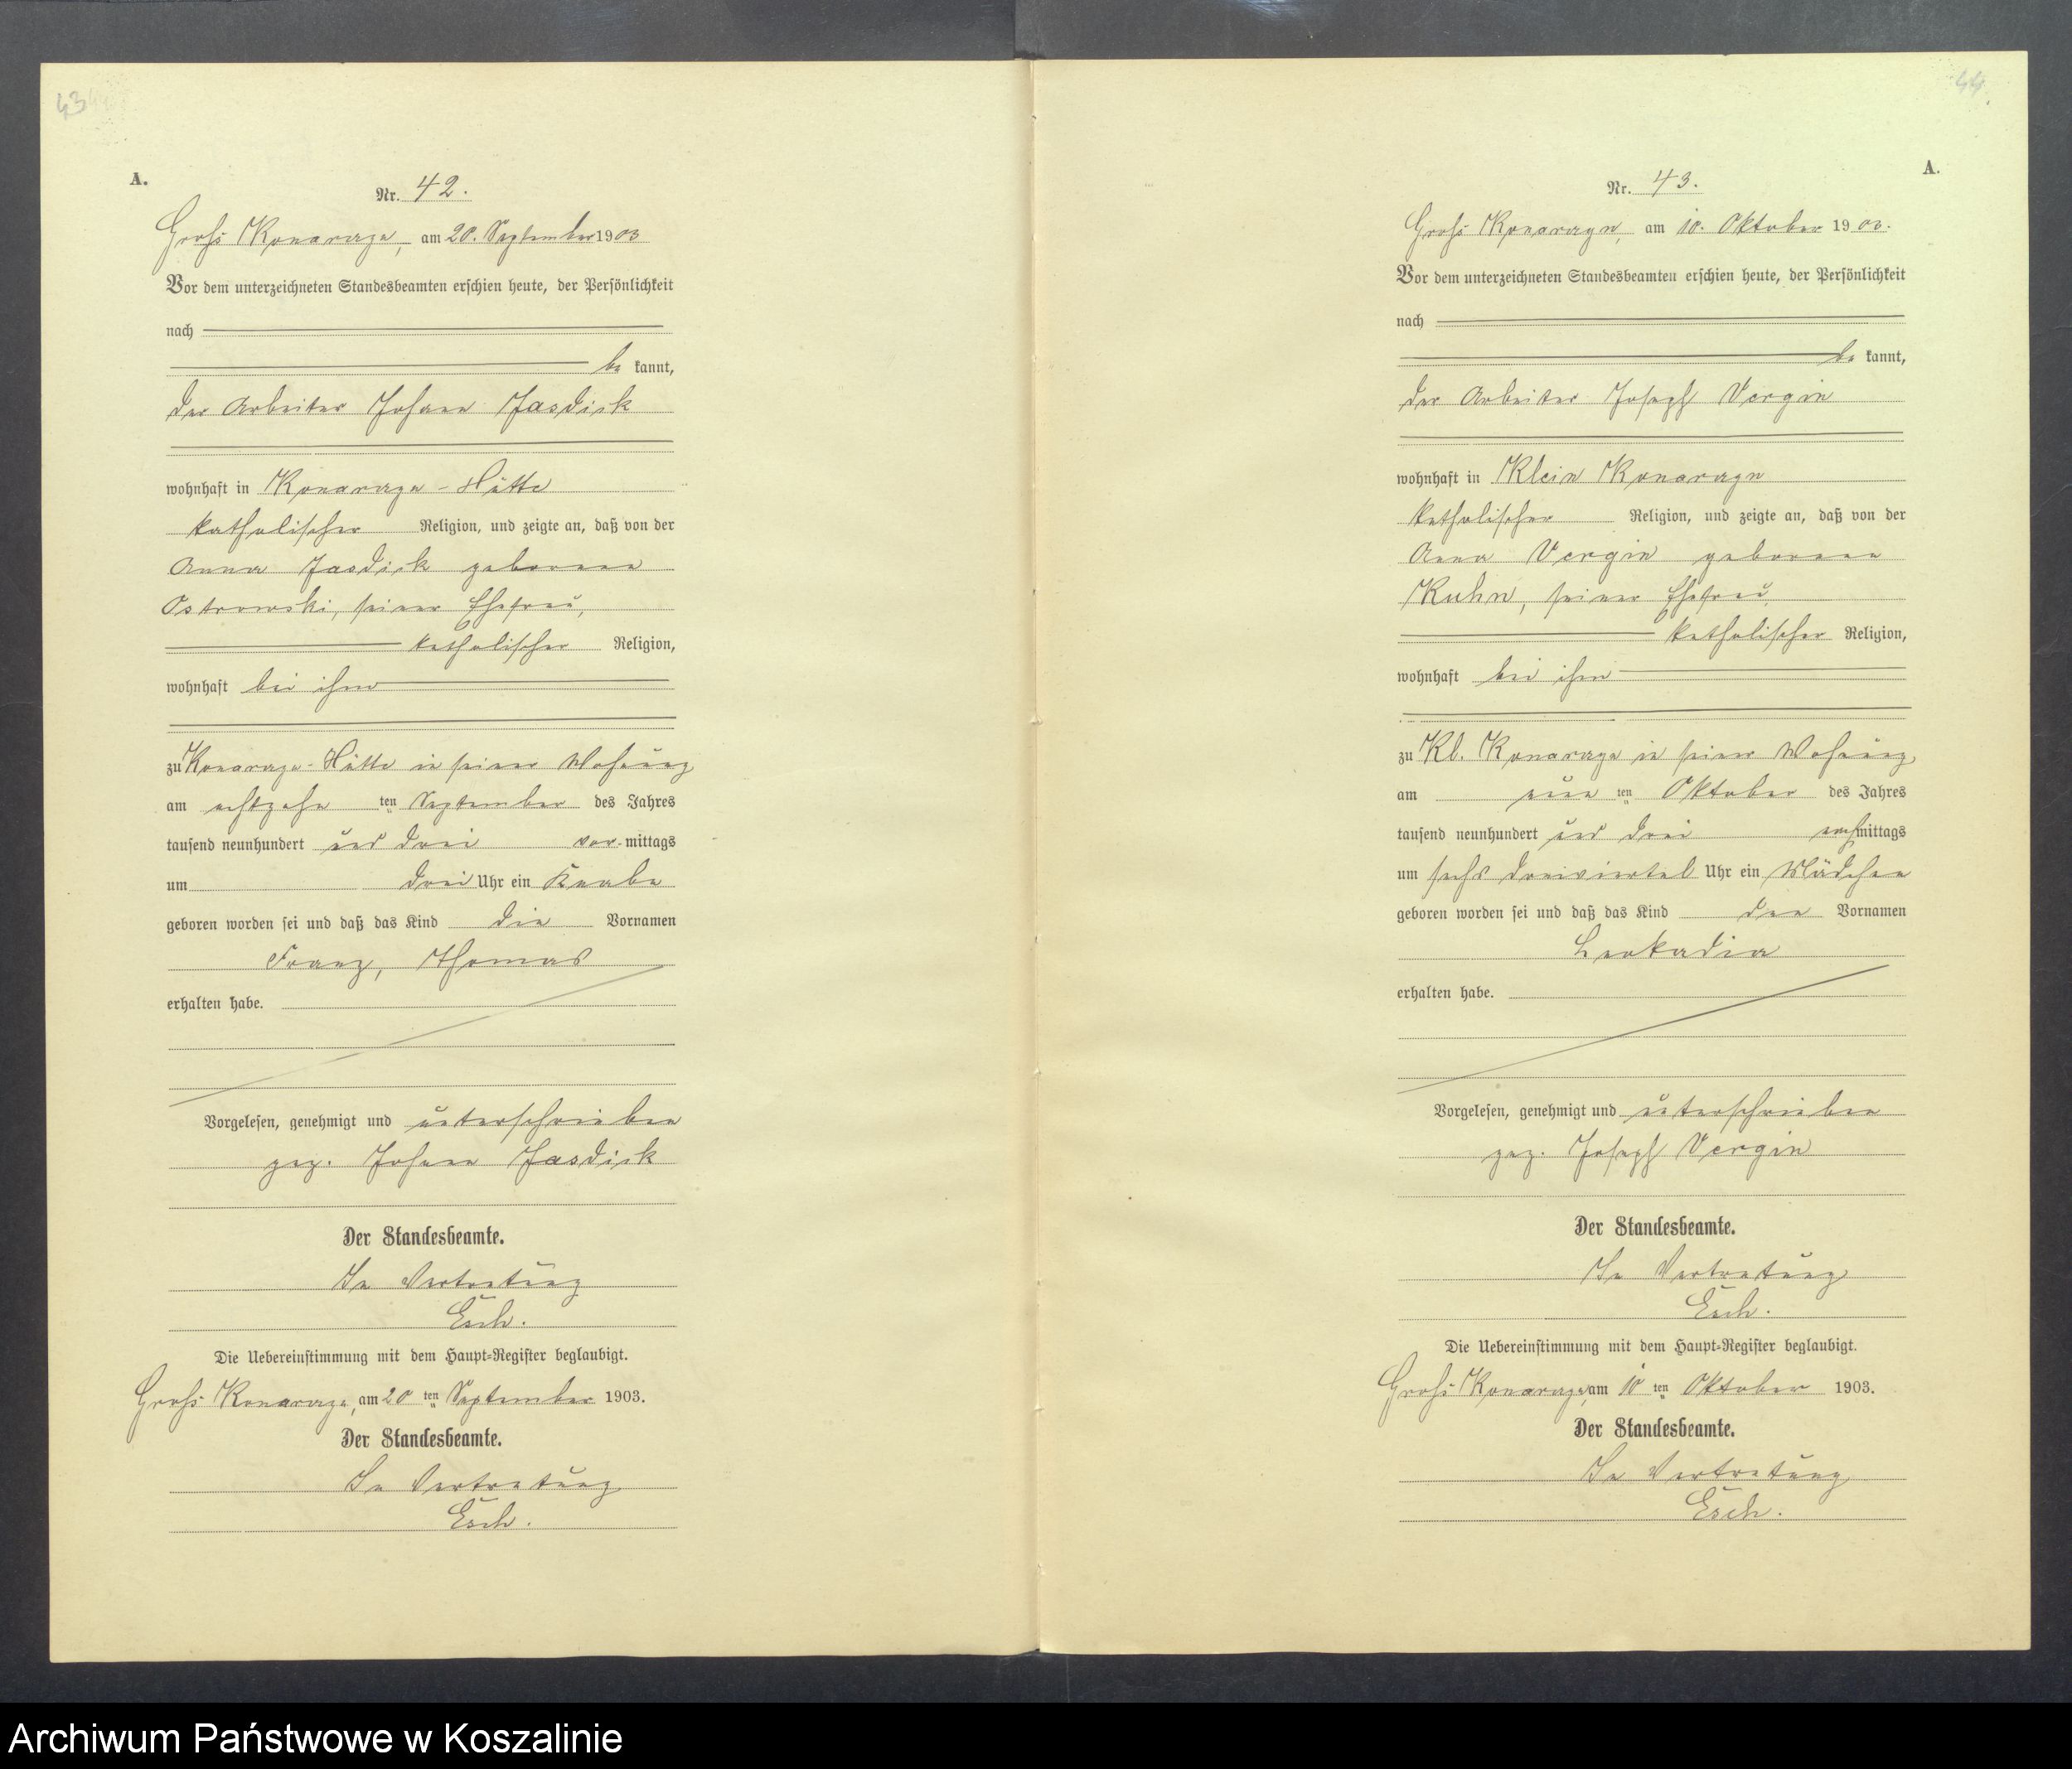 43
A.
Nr. 42.
Groß Konarczyn, am 20. September 1903
Vor dem unterzeichneten Standesbeamten erschien heute, der Persönlichkeit
nach
be kannt,
der Arbeiter Johann Jasdick
wohnhaft in Konarczyn-Hütte
katholischer Religion, und zeigte an, daß von der
Anna Jasdick geborenen
Ostrowski, seiner Ehefrau,
katholischer Religion,
wohnhaft bei ihm
zu Konarczyn-Hütte in seiner Wohnung
am achtzehn ten September des Jahres
tausend neunhundert und drei vor-mittags
um drei Uhr ein Knabe
geboren worden sei und daß das Kind die Vornamen
Franz, Thomas
erhalten habe.
Vorgelesen, genehmigt und unterschrieben
gez. Johann Jasdick
Der Standesbeamte.
In Vertretung
Esch.
Die Uebereinstimmung mit dem Haupt-Register beglaubigt.
Groß Konarczyn, am 20 ten September 1903.
Der Standesbeamte.
In Vertretung
Esch.
44
A.
Nr. 43.
Groß Konarczyn, am 10. Oktober 1903.
Vor dem unterzeichneten Standesbeamten erschien heute, der Persönlichkeit
nach
be kannt,
der Arbeiter Joseph Vergin
wohnhaft in Klein Konarczyn
katholischer Religion, und zeigte an, daß von der
Anna Vergin geborenen
Kuhn, seiner Ehefrau,
katholischer Religion,
wohnhaft bei ihm
zu Kl. Konarczyn in seiner Wohnung,
am neun ten Oktober des Jahres
tausend neunhundert und drei nachmittags
um sechs dreiviertel Uhr ein Mädchen
geboren worden sei und daß das Kind den Vornamen
Leokadia
erhalten habe.
Vorgelesen, genehmigt und unterschrieben
gez. Joseph Vergin
Der Standesbeamte.
In Vertretung
Esch.
Die Uebereinstimmung mit dem Haupt-Register beglaubigt.
Groß Konarczyn, am 10 ten Oktober 1903.
Der Standesbeamte.
In Vertretung
Esch.
Archiwum Państwowe w Koszalinie